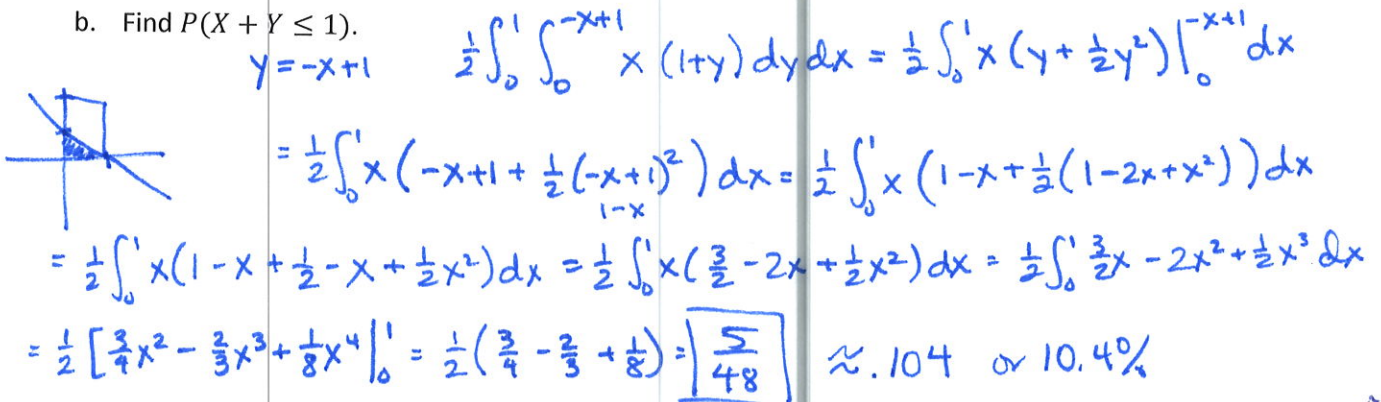 b. Find P(X + Y ≤ 1).
y = -x+1
½∫₀¹ ∫₀^(-x+1) x (1+y) dy dx = ½∫₀¹ x (y + ½y²)|₀^(-x+1) dx
= ½∫₀¹ x (-x+1 + ½(-x+1)²) dx = ½∫₀¹ x (1-x+½(1-2x+x²)) dx
1-x
= ½∫₀¹ x(1-x+½-x+½x²) dx = ½∫₀¹ x(3/2 - 2x + ½x²) dx = ½∫₀¹ 3/2x - 2x² + ½x³ dx
= ½[¾x² - ⅔x³ + ⅛x⁴|₀¹ = ½(¾ - ⅔ + ⅛) = 5/48 ≈ .104 or 10.4%